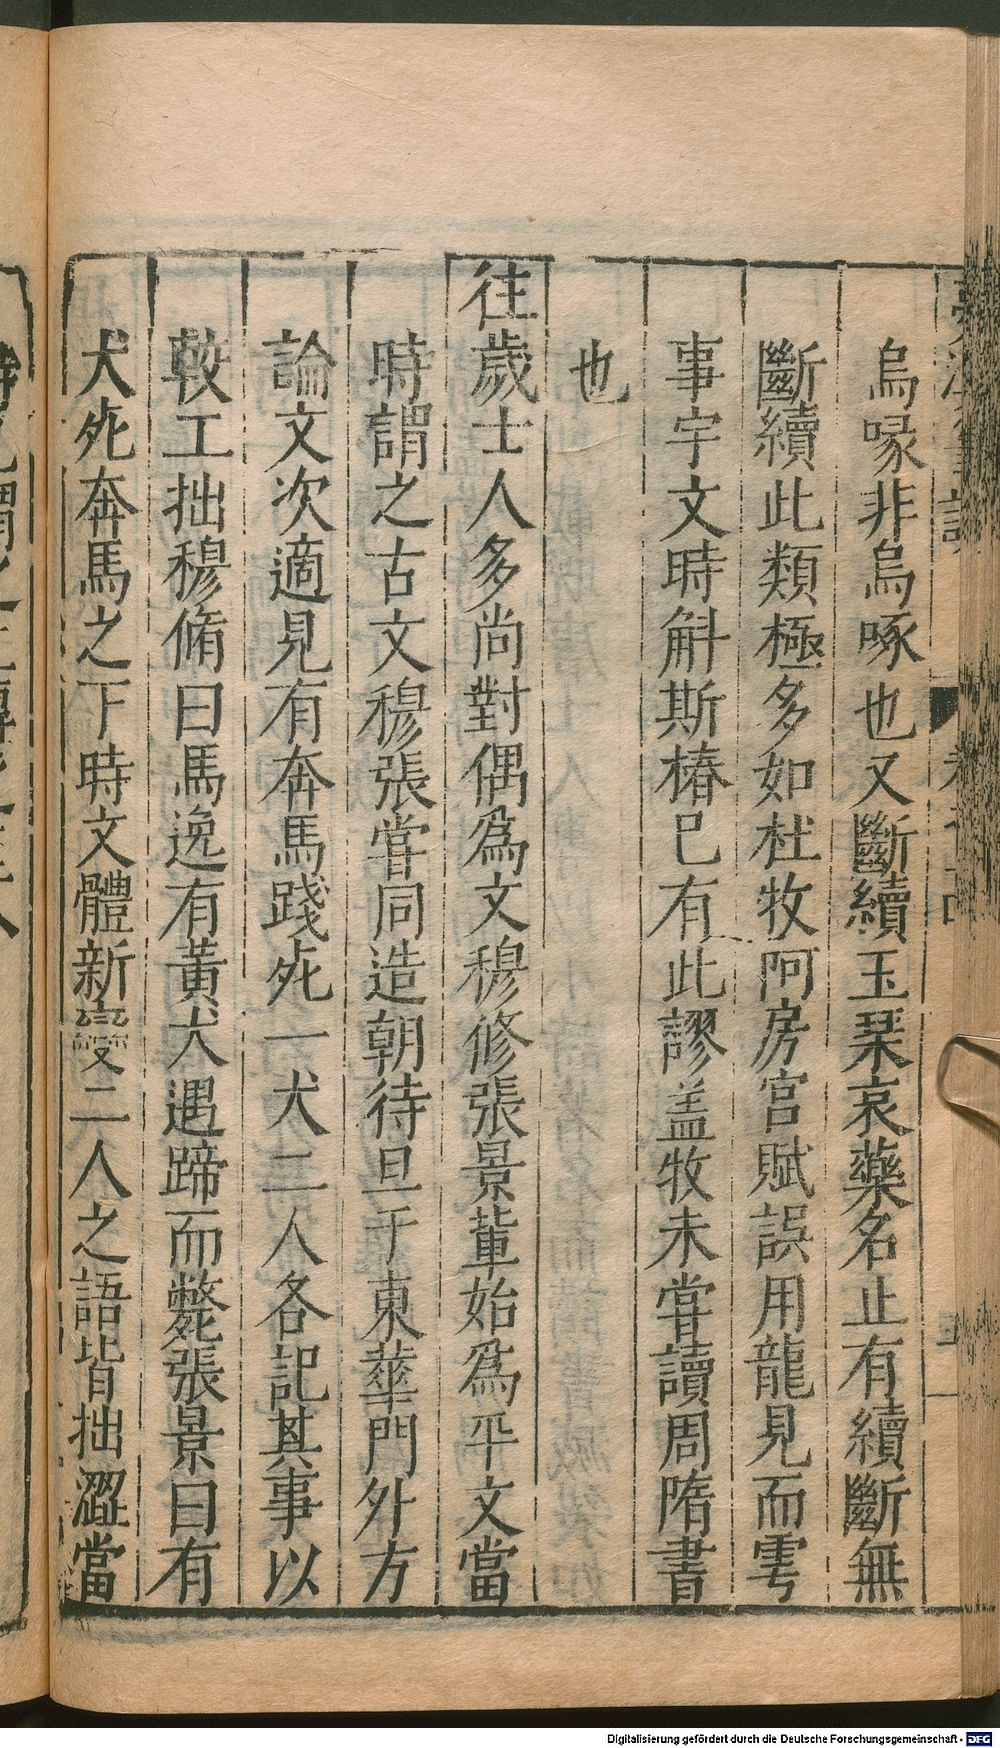 烏喙非烏啄也又斷續玉琹哀藥名止有續斷無
斷續此類極多如杜牧阿房宮賦誤用龍見而雩
事宇文時斛斯椿已有此謬盖牧未甞讀周隋書
也
往歲士人多尚對偶爲文穆修張景輩始爲平文當
時謂之古文穆張甞同造朝待旦于東華門外方
論文次適見有奔馬踐死一犬二人各記其事以
較工拙穆脩曰馬逸有黃犬遇蹄而斃張景曰有
犬死奔馬之下時文體新變二人之語皆拙澀當
Digitalisierung gefördert durch die Deutsche Forschungsgemeinschaft - DFG